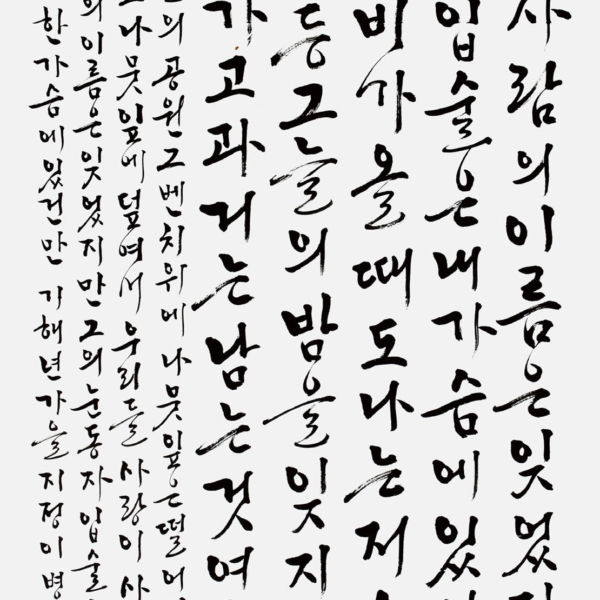 사람의이름은잊었지
입술은내가슴에있
비가올때도나는저
등그늘의밤을잊지
가고과거는남는것여
의공원그벤치위에나뭇잎은떨어
나뭇잎에덮여서우리들사랑이사
의이름은잊었지만그의눈동자입술
한가슴에있건만 기해년가을지정이병